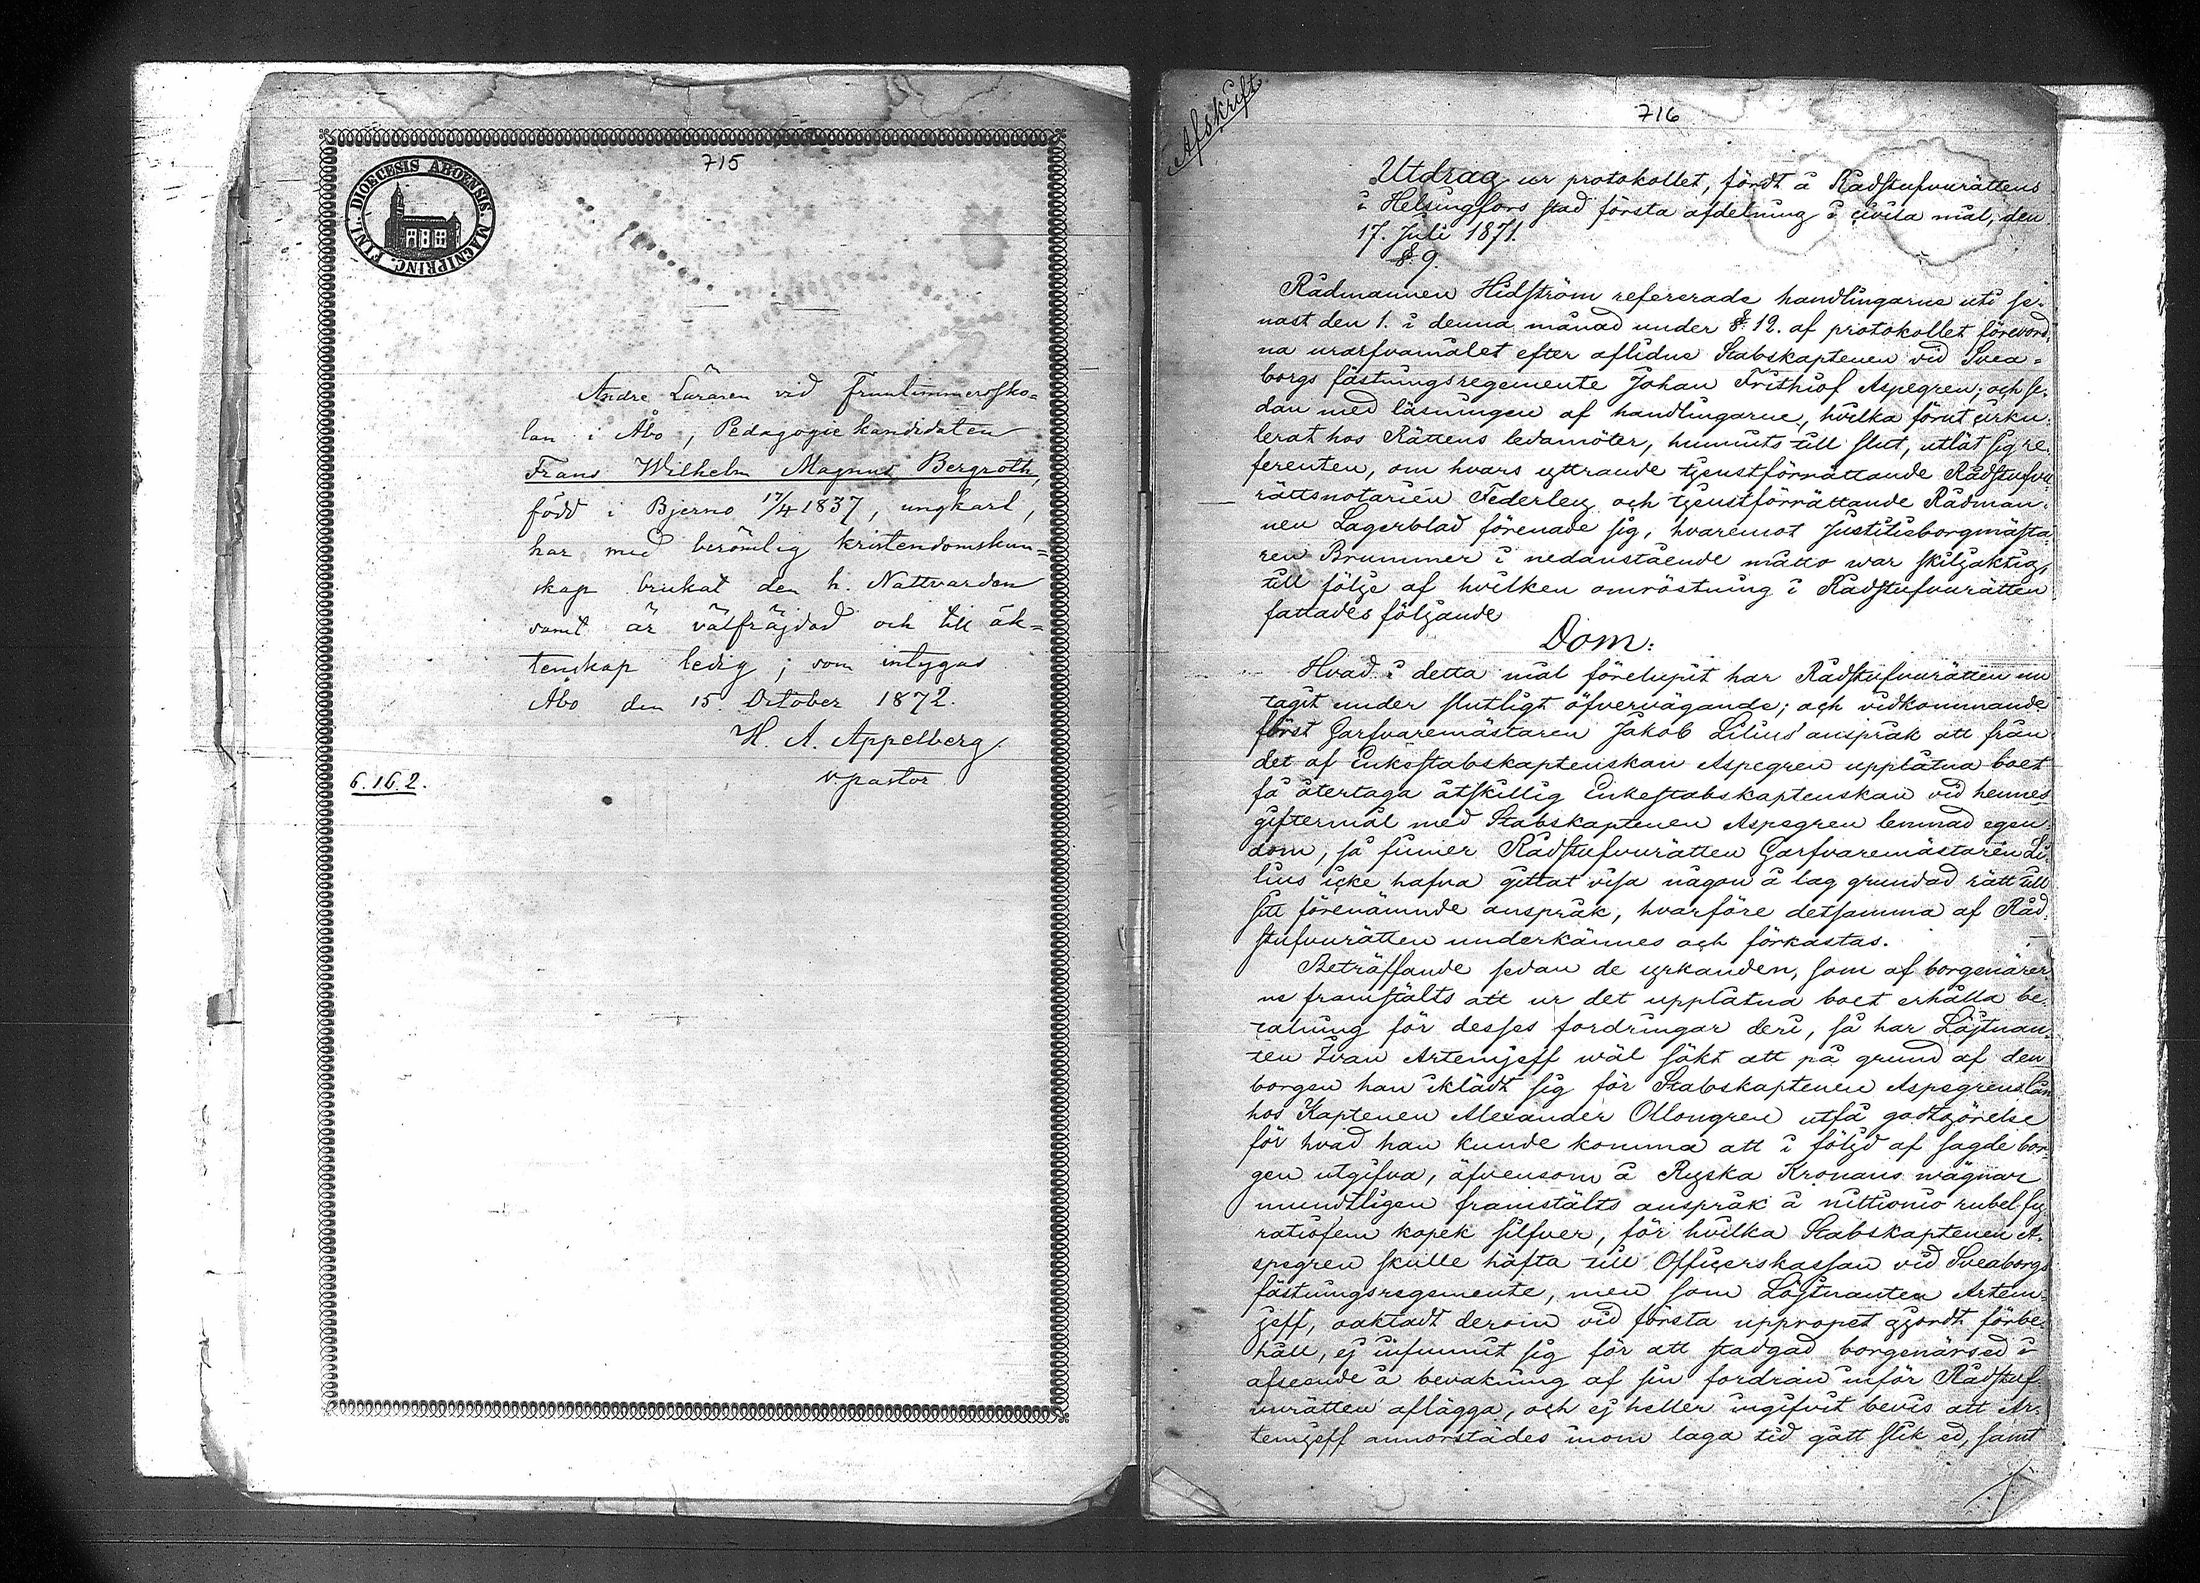 715
FINL. DIOECESIS ABOENSIS. MAGNI PRINC.
Andre Läraren vid Fruntimmersko-
lan i Åbo, Pedagogie kandidaten
Frans Wilhelm Magnus Bergroth,
född i Bjerno 17/4 1837, ungkarl,
har med berömlig kristendomskun-
skap brukat den h. Nattvarden
samt är välfräjdad och till äk-
tenskap ledig; som intygas
Åbo den 15 October 1872.
H. A. Appelberg.
v pastor
6.16.2.
Afskrift
716
Utdrag ur protokollet, fördt å Rådstufvurättens
i Helsingfors stad första afdelning i civila mål, den
17. Juli 1871.
§ 9.
Rådmannen Hidström refererade handlingarne uti se-
nast den 1. i denna månad under § 12. af protokollet förevord-
na urarfvamålet efter aflidne Stabskaptenen vid Svea-
borgs fästningsregemente Johan Frithiof Aspegren; och se-
dan med läsningen af handlingarne, hvilka förut cirku-
lerat hos Rättens ledamöter, hunnits till slut, utlät sig re-
ferenten, om hvars yttrande tjenstförrättande Rådstufvu-
rättsnotarien Federley och tjenstförrättande Rådman-
nen Lagerblad förenade sig, hvaremot Justitieborgmästa-
ren Brummer i nedanstående måtto war skiljaktig,
till följe af hvilken omröstning i Rådstufvurätten
fattades följande
Dom:
Hvad i detta mål förelupit har Rådstufvurätten nu
tagit under slutligt öfvervägande; och vidkommande
först Garfvaremästaren Jakob Lilius' anspråk att från
det af Enkestabskaptenskan Aspegren upplåtna boet
få återtaga åtskillig Enkestabskaptenskan vid hennes
giftermål med Stabskaptenen Aspegren lemnad egen-
dom, så finner Rådstufvurätten Garfvaremästaren Li-
lius icke hafva gittat visa någon å lag grundad rätt till
sitt förenämnde anspråk, hvarföre detsamma af Råd-
stufvurätten underkännes och förkastas.
Beträffande sedan de yrkanden, som af borgenärer-
ne framstälts att ur det upplåtna boet erhålla be-
talning för desses fordringar deri, så har Löjtnan-
ten Ivan Artemjeff wäl sökt att på grund af den
borgen han iklädt sig för Stabskaptenen Aspegrens lån
hos Kaptenen Alexander Ollongren utfå godtgörelse
för hvad han kunde komma att i följd af sagde bor-
gen utgifva, äfvensom å Ryska Kronans wägnar
mundtligen framstälts anspråk å nittionio rubel fy-
ratiofem kopek silfver, för hvilka Stabskaptenen A-
spegren skulle häfta till Officerskassan vid Sveaborgs
fästningsregemente, men som Löjtnanten Artem-
jeff, oaktadt derom vid första uppropet gjordt förbe-
håll, ej infunnit sig för att stadgad borgenärsed i
afseende å bevakning af sin fordran inför Rådstuf-
vurätten aflägga, och ej heller ingifvit bevis att Ar-
temjeff annorstädes inom laga tid gått slik ed, samt